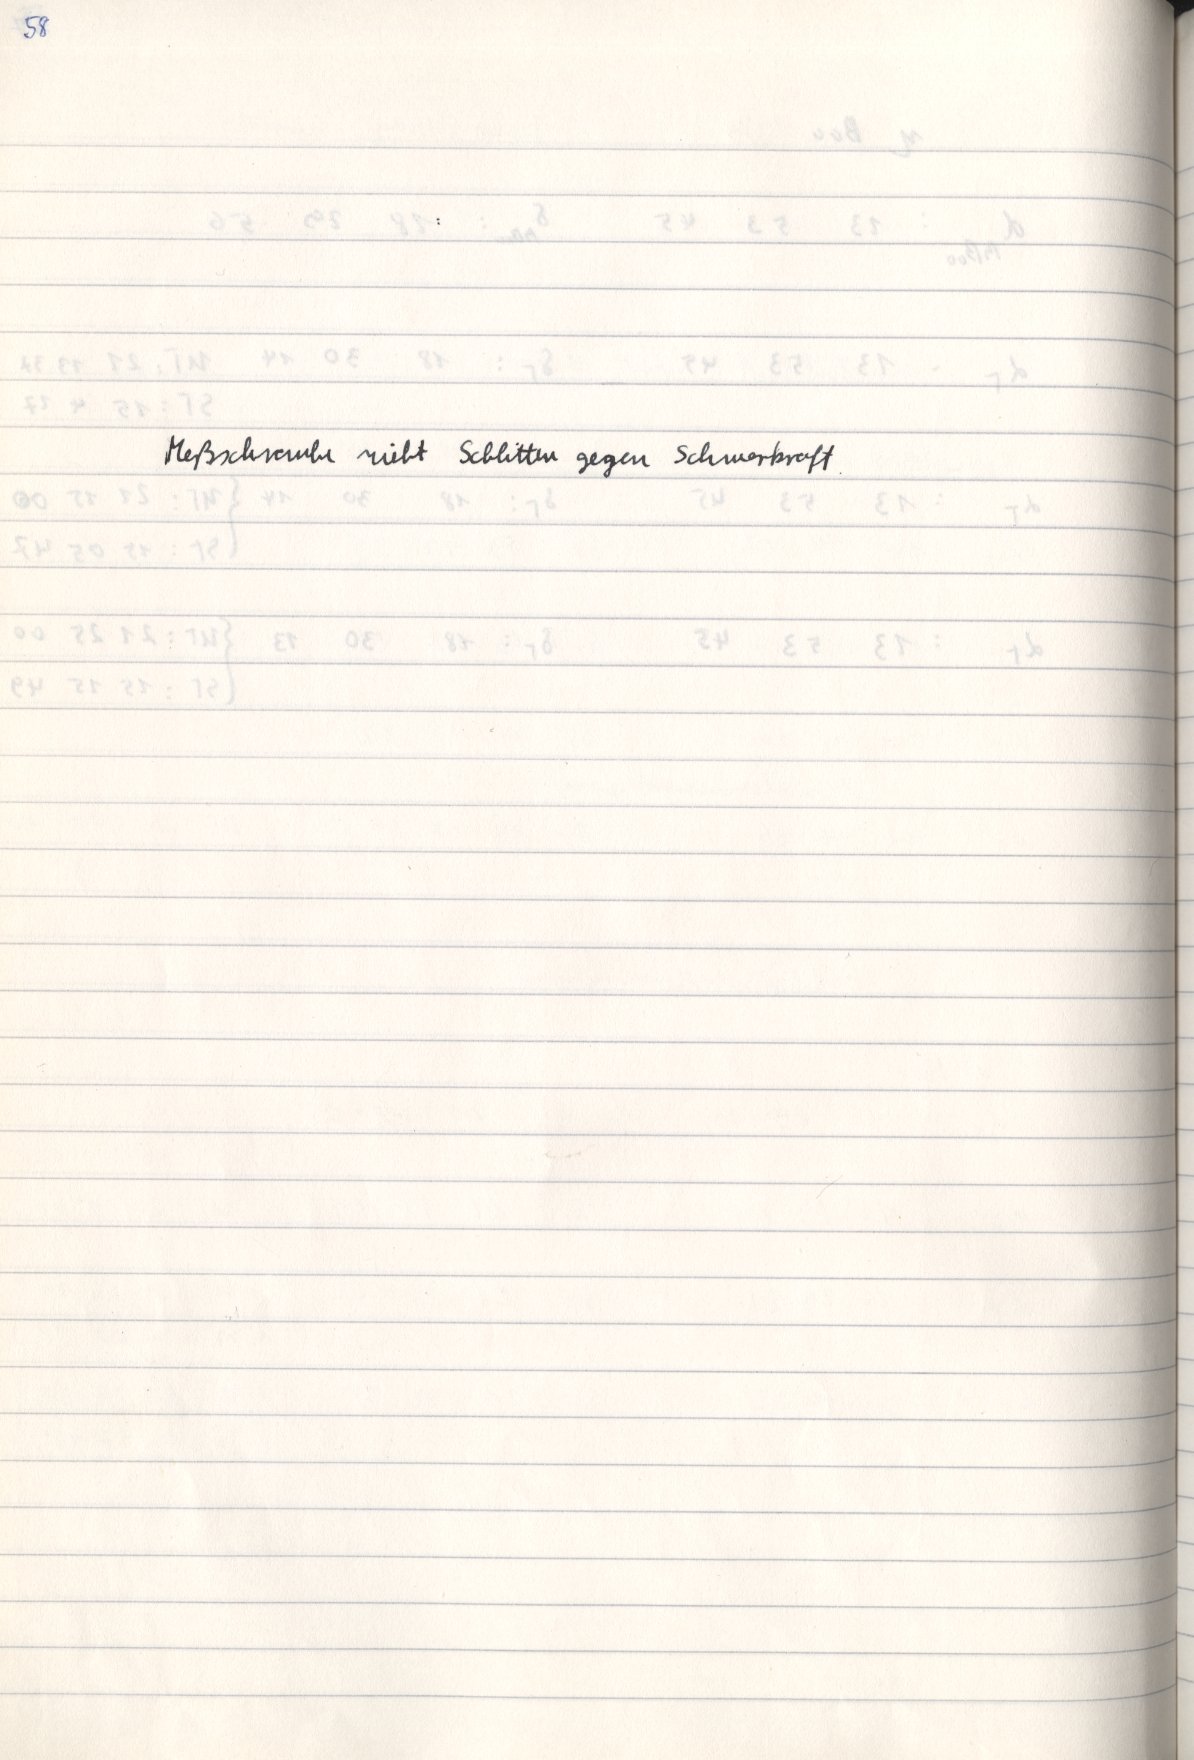 58
Meßschraube zieht Schlitten gegen Schwerkraft.